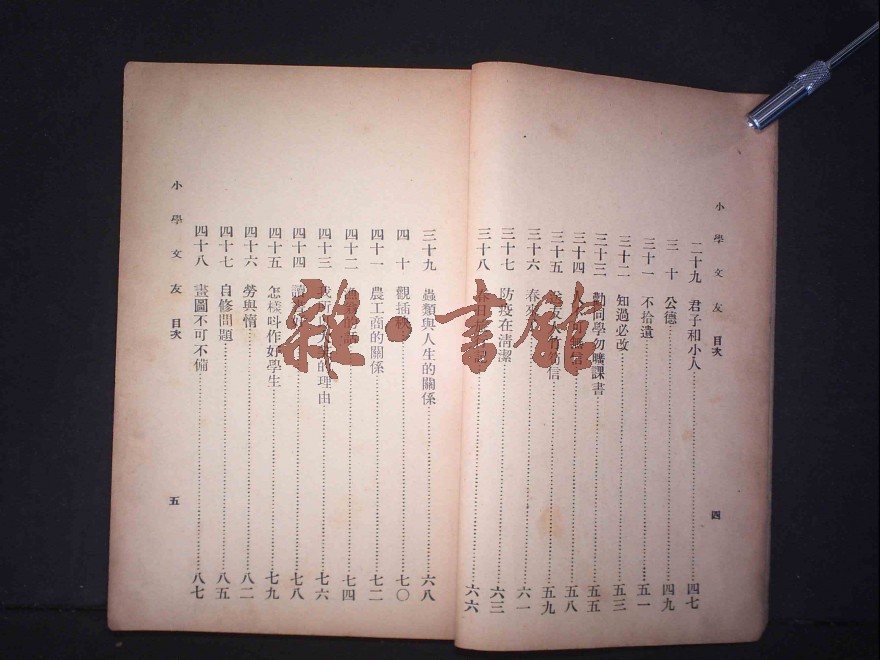 小學文友 目次 四
二十九 君子和小人 四七
三十 公德 四九
三十一 不拾遺 五一
三十二 知過必改 五三
三十三 勸同學勿曠課書 五五
三十四 人不可無信 五八
三十五 友人 信 五九
三十六 春來 六一
三十七 防疫在清潔 六三
三十八 春日 六六
三十九 蟲類與人生的關係 六八
四十 觀插秧 七〇
四十一 農工商的關係 七二
四十二 的話 七四
四十三 我 的理由 七六
四十四 讀 七八
四十五 怎樣呌作好學生 七九
四十六 勞與惰 八二
四十七 自修問題 八五
四十八 畫圖不可不備 八七
小學文友 目次 五
雜·書館